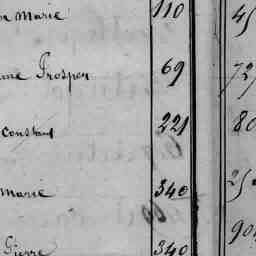 Marie 110 45
Prosper 69
constant 221 80
Marie 340
Pierre 340 90